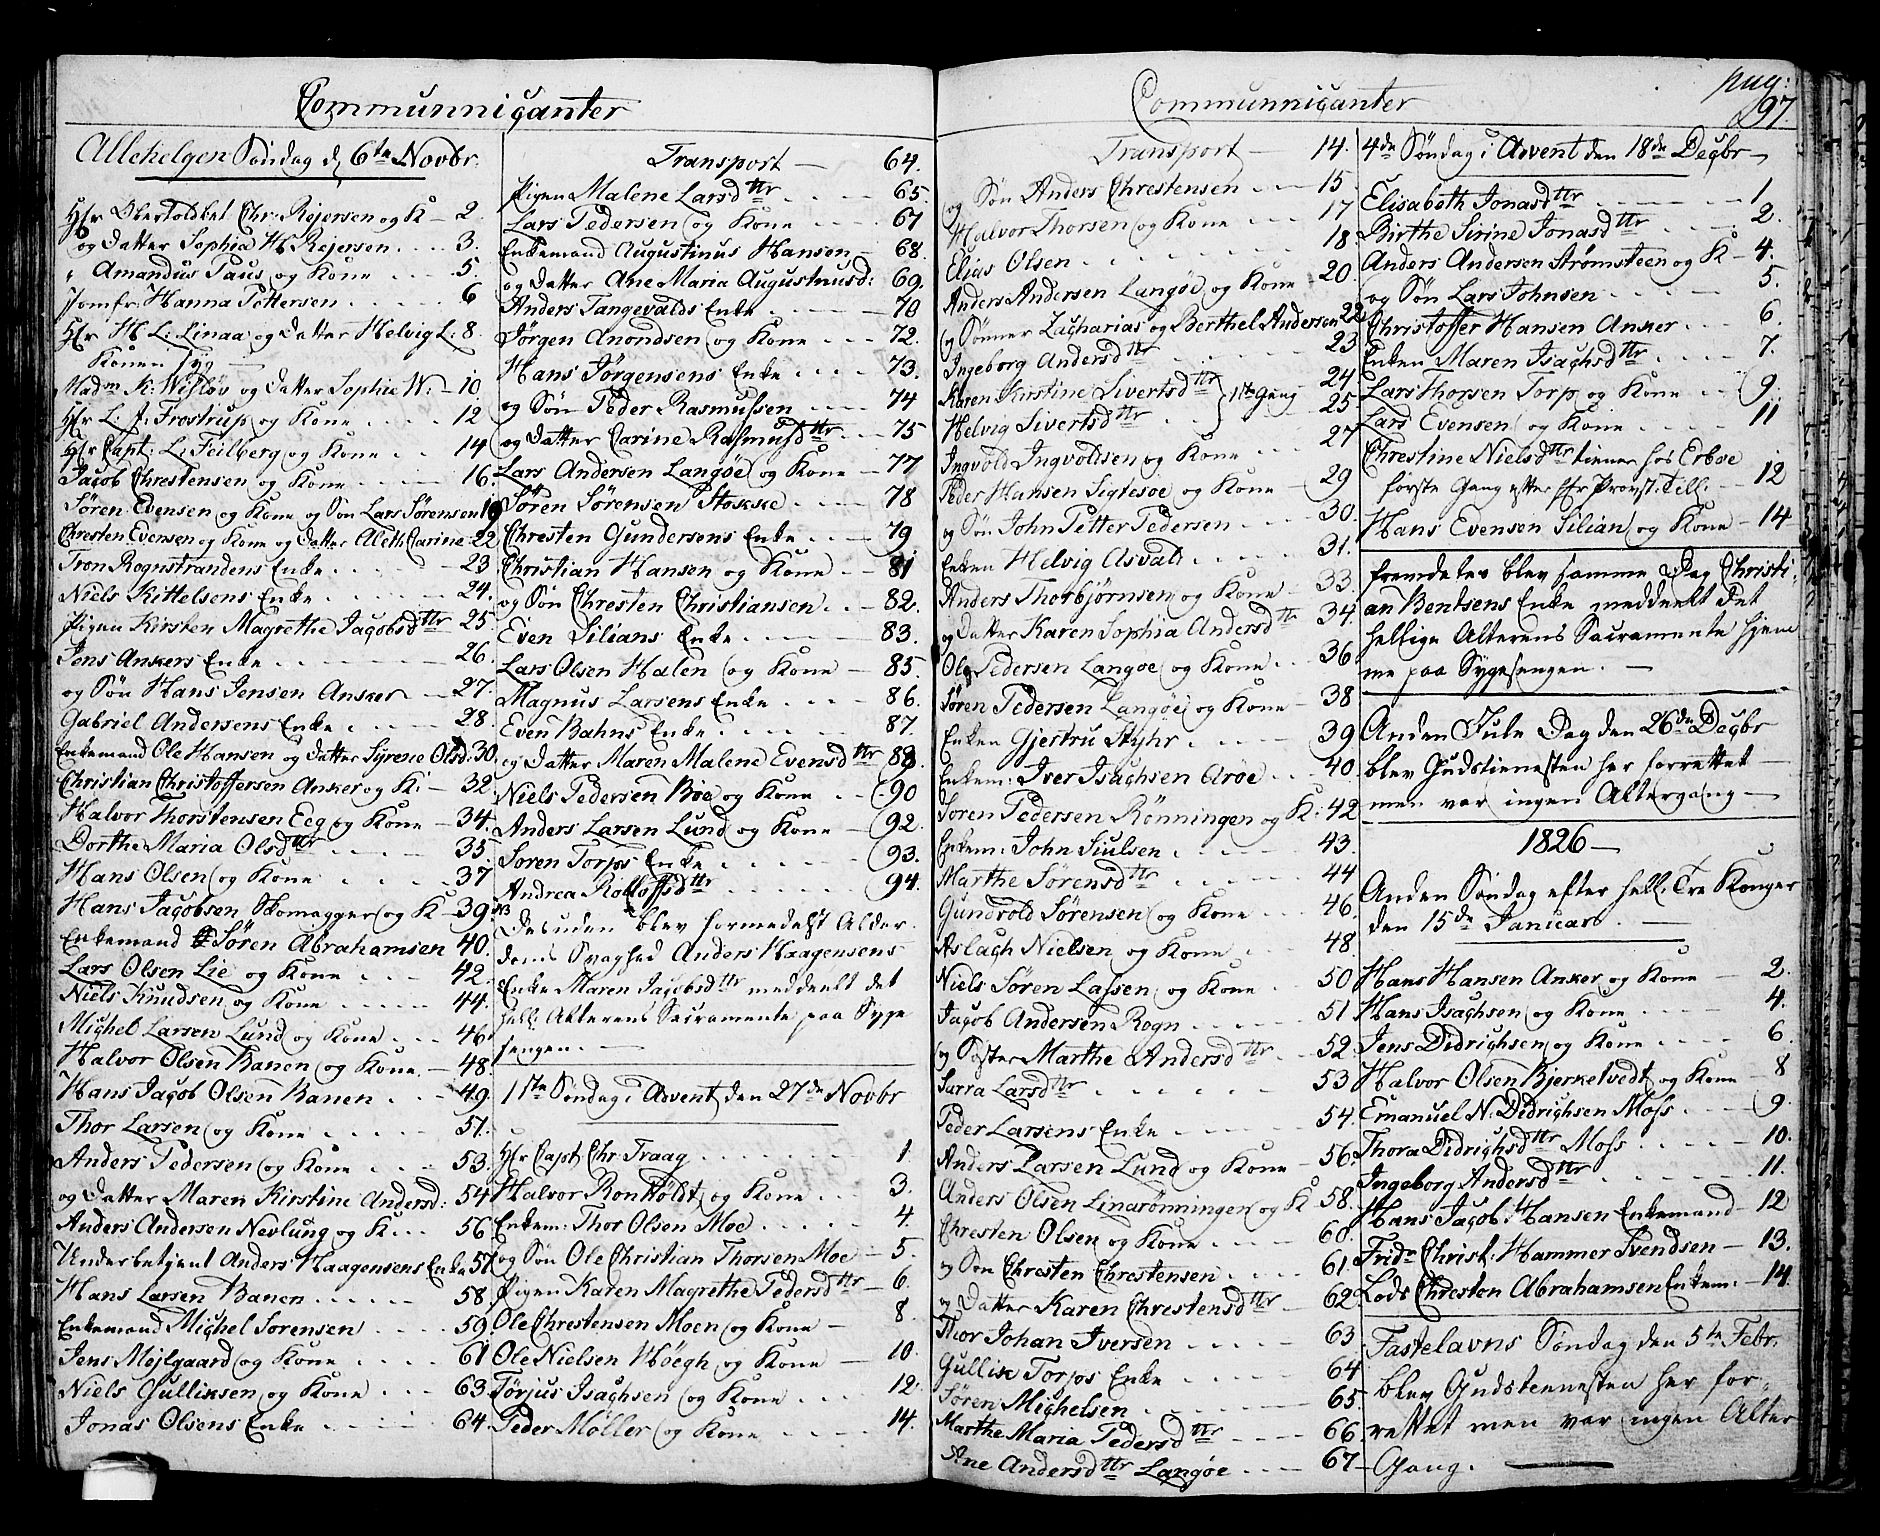 Communniçanter
Allehelgen Söndag d 6te Novbr.
Hfr Obertoldbet. Chr: Rejersen og K — 2.
og datter Sophia H. Rejersen . . . 3.
" Amandus Taus og Kone . . . . 5.
Jomfr: Hanna Pettersen . . . . . 6
Hfr H. L: Linaa og datter Helvig L: 8.
Konen syg
Madm K: Wisløv og datter Sophia W: — 10.
Hfr L. J. Frostrup og Kone . . . 12
Hfr Capt: L: Feilberg og Kone . . 14
Jacob Chrestensen og Kone . . . 16.
Søren Evensen og Kone og Søn Lars Sørensen 19
Chresten Evensen og Kone og datter Aleth Carine — 22
Tron Rognstrandens Enke . . . . . 23
Niels Kittelsens Enke . . . . . . 24.
Pigen Kirsten Magrethe Jacobsdttr 25.
Jens Ankers Enke . . . . . . 26.
og Søn Hans Jensen Anker — 27.
Gabriel Andersens Enke . . . . 28.
Enkemand Ole Hansen og datter Syrene Olsd: 30.
Christian Christoffersen Anker og K: — 32.
Halvor Thorstensen Eeg og Kone — 34.
Dorthe Maria Olsdttr . . . . . 35.
Hans Olsen og Kone . . . . . 37
Hans Jacobsen Skomagger og K — 39.
Enkemand Søren Abrahamsen 40.
Lars Olsen Lie og Kone . . . 42.
Niels Knudsen og Kone . . . . 44.
Michel Larsen Lund og Kone . . . 46.
Halvor Olsen Banen og Kone. — 48.
Hans Jacob Olsen Banen . . . 49
Thor Larsen og Kone . . . . 51.
Anders Pedersen og Kone . . . . 53.
og datter Maren Kirstine Andersd: 54
Anders Andersen Nevlung og K . . . 56
Underbetjent Anders Haagensens Enke 57
Hans Larsen Banen . . . . . . 58.
Enkemand Michel Sorensen . . . . 59.
Jens Mejlgaard og Kone . . . . 61
Niels Gulliksen og Kone . . . 63.
Jonas Olsens Enke . . . . . 64.
Transport — 64.
Pigen Malene Larsdttr . . . . 65.
Lars Pedersen og Kone . . . . 67
Enkemand Augustinus Hansen — 68.
og datter Ane Maria Augustinusd: 69.
Anders Tangevalds Enke . . . . 70
Jörgen Anondsen og Kone . . . 72.
Hans Jørgensens Enke . . . . 73.
og Søn Peder Rasmussen . . . . 74
og datter Carine Rasmusdttr . . . 75
Lars Andersen Langøe og Kone — 77
Søren Sørensen Stokke . . . . 78
Chresten Gundersens Enke . . . 79
Christian Hansen og Kone — 81
og Søn Chresten Christiansen . . . 82.
Even Silians Enke . . . . . 83.
Lars Olsen Halen og Kone — 85.
Magnus Larsens Enke . . . . 86.
Even Bahns Enke . . . . . . 87.
og datter Maren Malene Evensdttr 88
Niels Pedersen Boe og Kone . . 90
Anders Larsen Lund og Kone — 92.
Soren Torps Enke . . . . . . 93.
Andrea Roloffsdttr . . . . . . 94.
NB
Desuden blev formedelst Alder-
doms Svaghed Anders Haagensens
Enke Maren Jacobsdttr meddeelt det
hell: Alterens Sacramente paa Syge
sengen. —
1ste Søndag i Advent den 27de Novbr
Hfr Capt Chr: Fraag . . . . . . . . 1.
Halvor Ronholdt og Kone . . . 3.
Enkem: Thor Olsen Moe . . . . . 4.
og Søn Ole Christian Thorsen Moe — 5.
Pigen Karen Magrethe Pedersdttr — 6.
Ole Chrestensen Moen og Kone — 8.
Ole Nielsen Høegh og Kone — 10.
Törjus Isachsen og Kone . . . 12.
Peder Møller og Kone . . . . 14.
Communniçanter
pag:
97
Transport — 14.
og Søn Anders Chrestensen . . . 15.
Halvor Thorsen og Kone . . . 17
Elias Olsen . . . . . . . 18.
Anders Andersen Langøe og Kone 20.
og Sønner Zacharias og Berthel Andersen 22
Ingeborg Andersdttr . . . . . . 23
Karen Kirstine Sivertsdttr } 1ste Gang 24
Helvig Sivertsdttr . . . 25
Ingvold Ingvoldsen og Kone . . . 27
Peder Hansen Sigtesøe og Kone — 29
og Søn John Petter Pedersen . . . 30.
Enken Helvig Asvald . . . . . 31.
Anders Thorbjørnsen og Kone — 33
og datter Karen Sophia Andersdttr 34.
Ole Pedersen Langøe og Kone . . . 36
Søren Pedersen Langøe og Kone — 38
Enken Gjertru Styhr . . . . . 39
Enkem: Iver Isachsen Aroe . . . 40.
Søren Pedersen Rönningen og K: 42
Enkem: John Siulsen . . . . . 43.
Marthe Sørensdttr . . . . . . 44
Gundvold Sørensen og Kone . . . 46.
Aslach Nielsen og Kone . . . 48
Niels Søren Lassen og Kone . 50
Jacob Andersen Rogn . . . . . 51
og Søster Marthe Andersdttr . . 52
Sarra Larsdttr . . . . . . . 53
Peder Larsens Enke . . . . . . 54.
Anders Larsen Lund og Kone — 56.
Anders Olsen Linarönningen og K 58.
Chresten Olsen og Kone . . . . 60.
og Søn Chresten Chrestensen . . . . 61
og Datter Karen Chrestensdttr — 62
Thor Johan Iversen . . . . . 63
Gullik Torps Enke . . . . . . 64
Søren Michelsen . . . . . . . 65.
Marthe Maria Pedersdttr . . . . 66.
Ane Andersdttr Langøe . . . — 67
4de Søndag i Advent den 18de Deçbr
Elisabeth Jonasdttr . . . . . . . 1
Birthe Sirine Jonasdttr . . . . . 2.
Anders Andersen Strømsteen og K — 4.
og Søn Lars Johnsen . . . . . . 5.
Christoffer Hansen Anker . . . 6.
Enken Maren Isachsdttr . . . . 7.
Lars Thorsen Torp og Kone . . . 9.
Lars Evensen og Kone . . . . . 11
Chrestine Nielsdttr tiener hos Erboe
første Gang efter Hfr Provst: Till. — 12
Hans Evensen Silian og Kone — 14
fremdeles blev samme Dag Christi-
an Bentsens Enke meddeelt det
hellige Alterens Sacramente hjem
me paa Sygesengen. —
Anden Jule Dag den 26de Deçbr
blev Gudstienesten her forrettet
men var ingen Altergang —
1826 —
Anden Søndag efter hell: Tre Konger
den 15de Januari.
Hans Hansen Anker og Kone — 2.
Hans Isachsen og Kone . . . . 4.
Jens Didrichsen og Kone . . . 6.
Halvor Olsen Bjerketvedt og Kone — 8
Emanuel N. Didrichsen Moss . . . 9.
Thora Didrichsdttr Moss . . . . . 10.
Ingeborg Andersdttr . . . . . . 11.
Hans Jacob Hansen Enkemand — 12
Fridr. Christ: Hammer Svendsen — 13.
Lods Chresten Abrahamsen Enkem: — 14.
Fastelavns Søndag den 5te Febr.
blev Gudstennesten her for-
rettet men var ingen Alter
Gang.